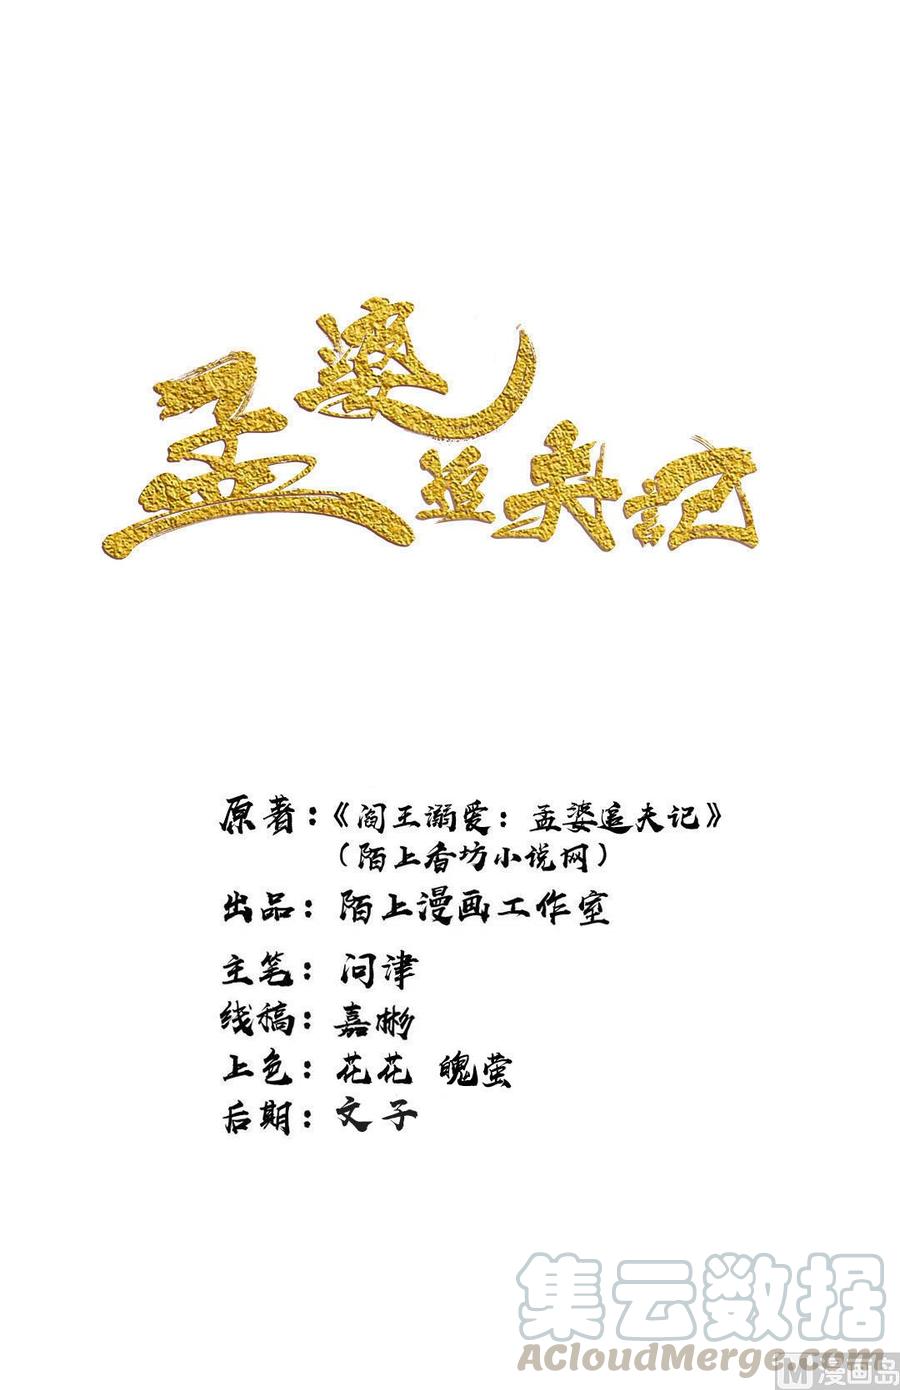 孟婆追夫记
原著：《阎王溺爱：孟婆追夫记》
（陌上香坊小说网）
出品：陌上漫画工作室
主笔：问津
线稿：嘉彬
上色：花花 魄萤
后期：文子
集云数据
ACloudMerge.com
M漫画岛